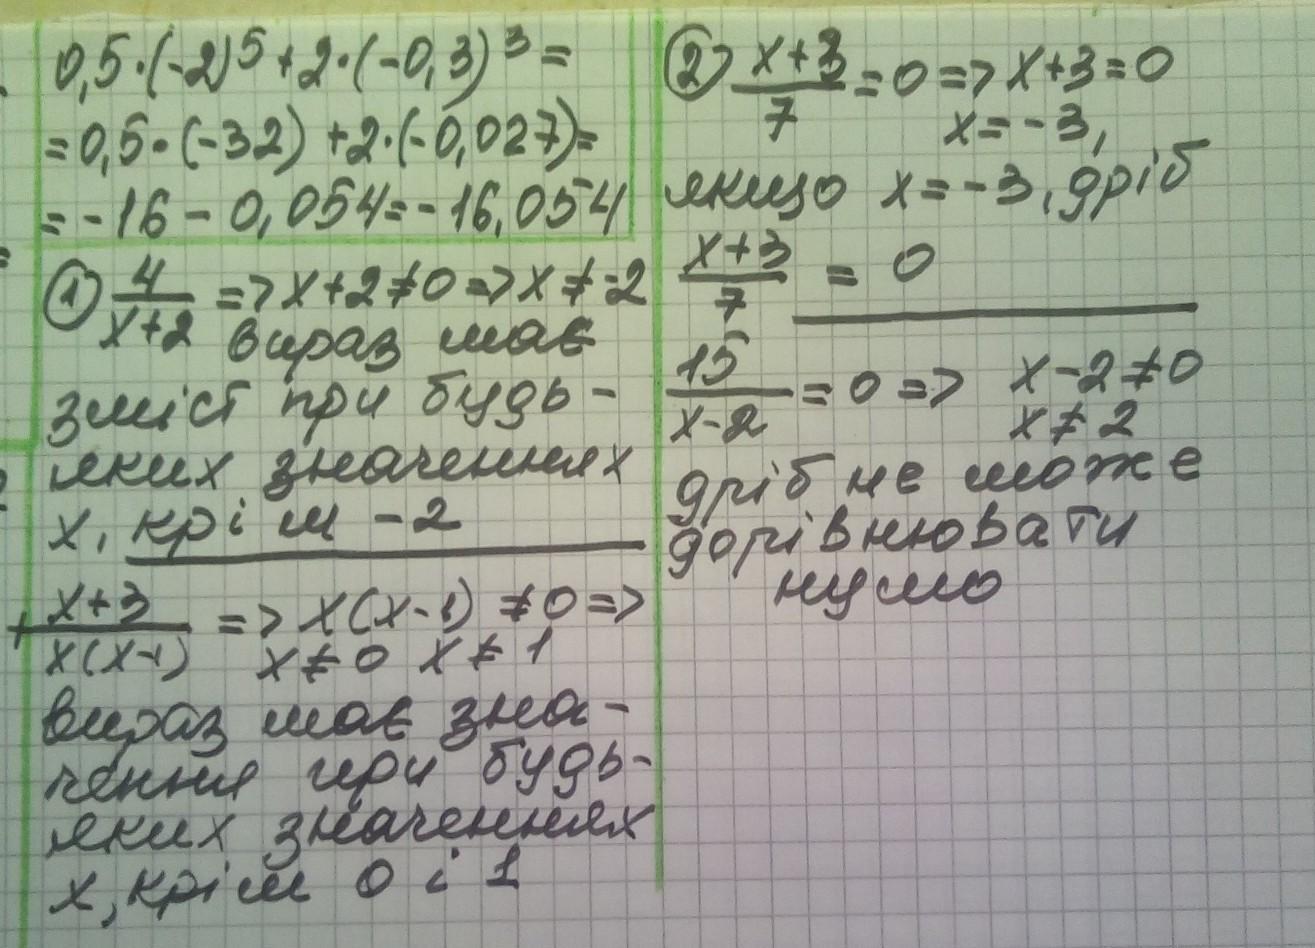 0,5·(-2)^5+2·(-0,3)^3=
=0,5·(-32)+2·(-0,027)=
=-16-0,054=-16,054
① 4/(x+2) => x+2≠0 => x≠-2
вираз має
зміст при будь-
яких значеннях
x, крім -2
(x+3)/(x(x-1)) => x(x-1)≠0 =>
x≠0 x≠1
вираз має зна-
чення при будь-
яких значеннях
x, крім 0 і 1
② (x+3)/7=0 => x+3=0
x=-3,
якщо x=-3, дріб
(x+3)/7 = 0
15/(x-2)=0 => x-2≠0
x≠2
дріб не може
дорівнювати
нулю